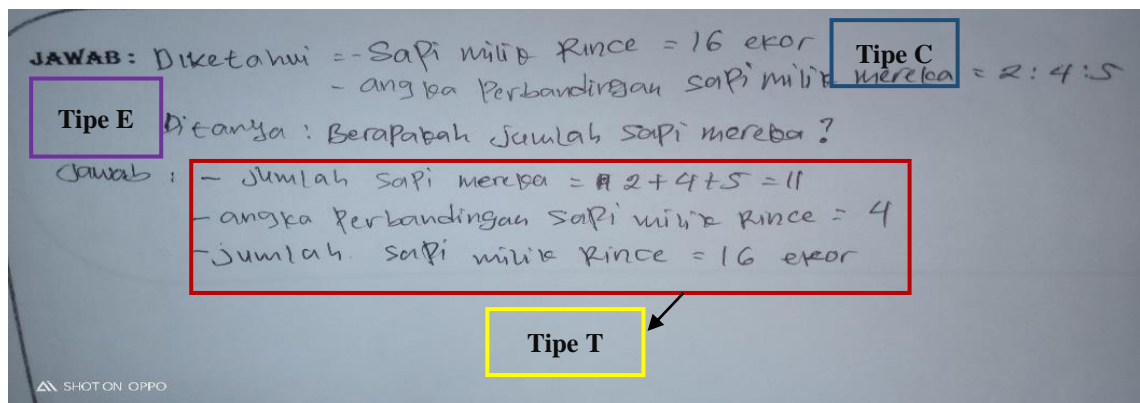 JAWAB: Diketahui = - Sapi milik Rince = 16 ekor
Tipe C
- angka Perbandingan sapi milik mereka = 2 : 4 : 5
Tipe E
Ditanya : Berapakah jumlah sapi mereka ?
Jawab : - Jumlah sapi mereka = 2 + 4 + 5 = 11
- angka Perbandingan sapi milik Rince = 4
- jumlah sapi milik Rince = 16 ekor
Tipe T
SHOT ON OPPO